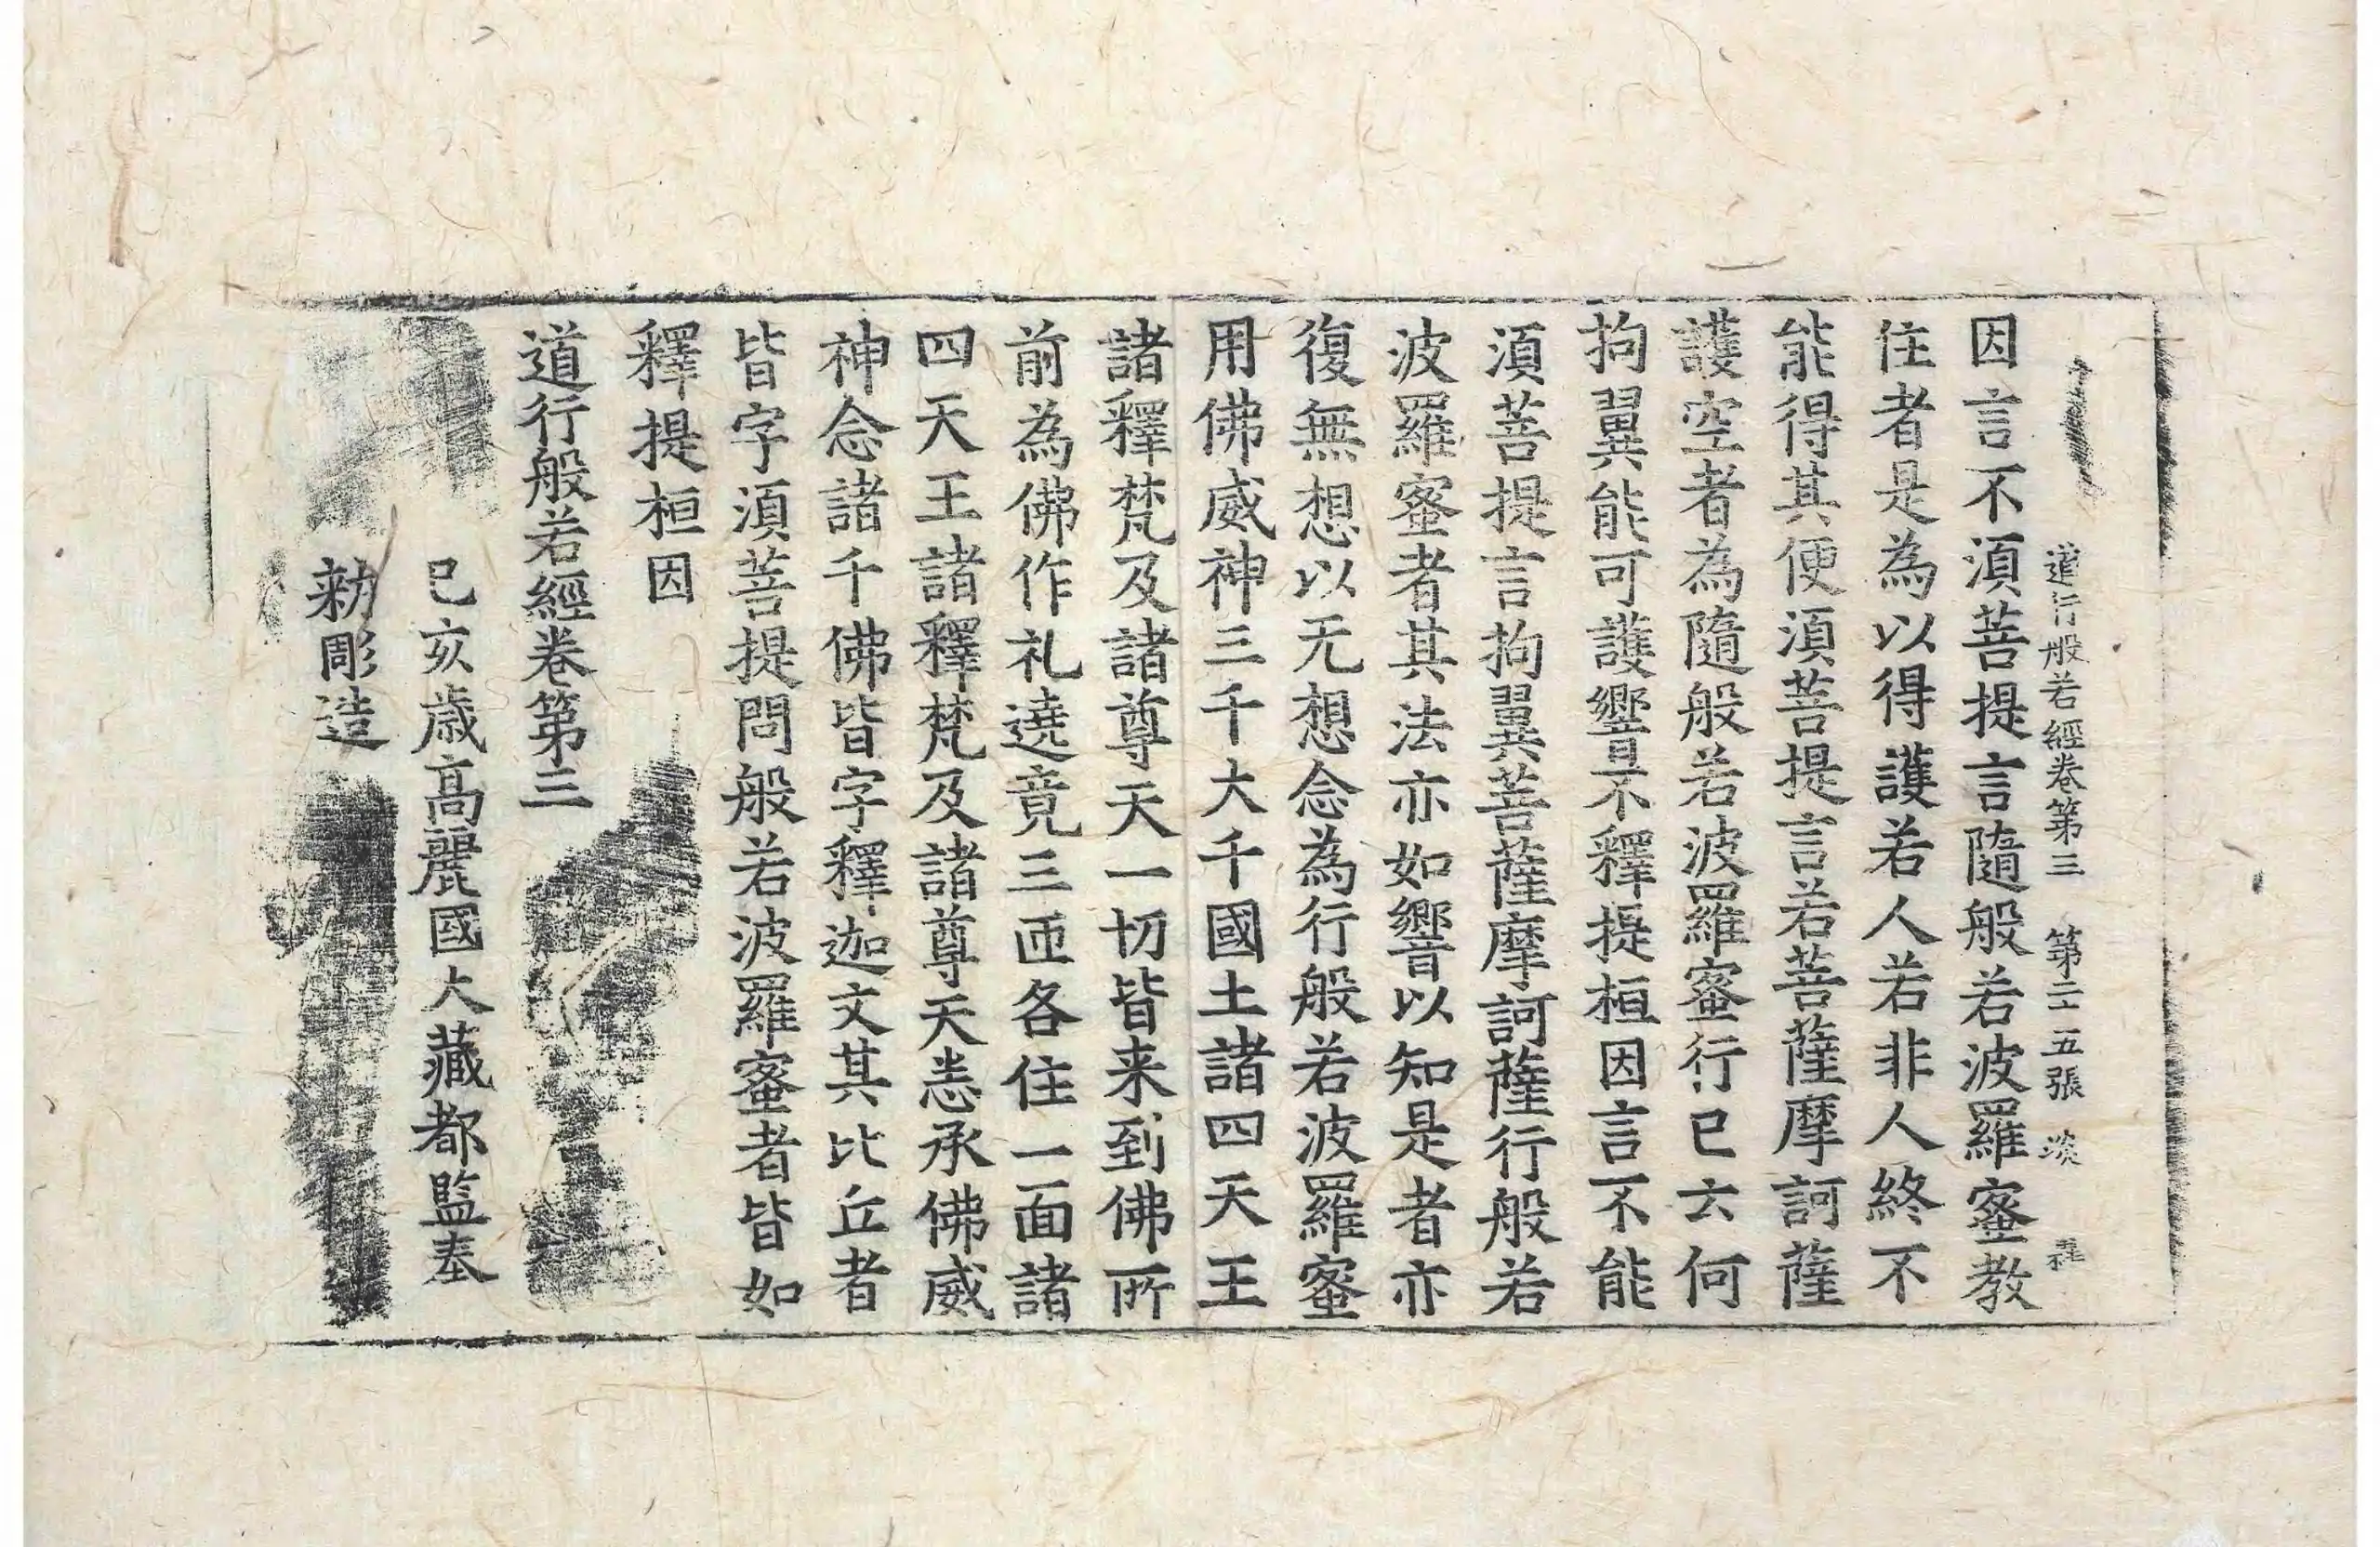 道行般若經卷第三 第二五張 淡
因言不須菩提言隨般若波羅蜜教
住者是為以得護若人若非人終不
能得其便須菩提言若菩薩摩訶薩
護空者為隨般若波羅蜜行已云何
拘翼能可護響不釋提桓因言不能
須菩提言拘翼菩薩摩訶薩行般若
波羅蜜者其法亦如響以知是者亦
復無想以无想念為行般若波羅蜜
用佛威神三千大千國土諸四天王
諸釋梵及諸尊天一切皆来到佛所
前為佛作礼遶竟三匝各住一面諸
四天王諸釋梵及諸尊天悉承佛威
神念諸千佛皆字釋迦文其比丘者
皆字須菩提問般若波羅蜜者皆如
釋提桓因
道行般若經卷第三
己亥歳高麗國大藏都監奉
勑彫造